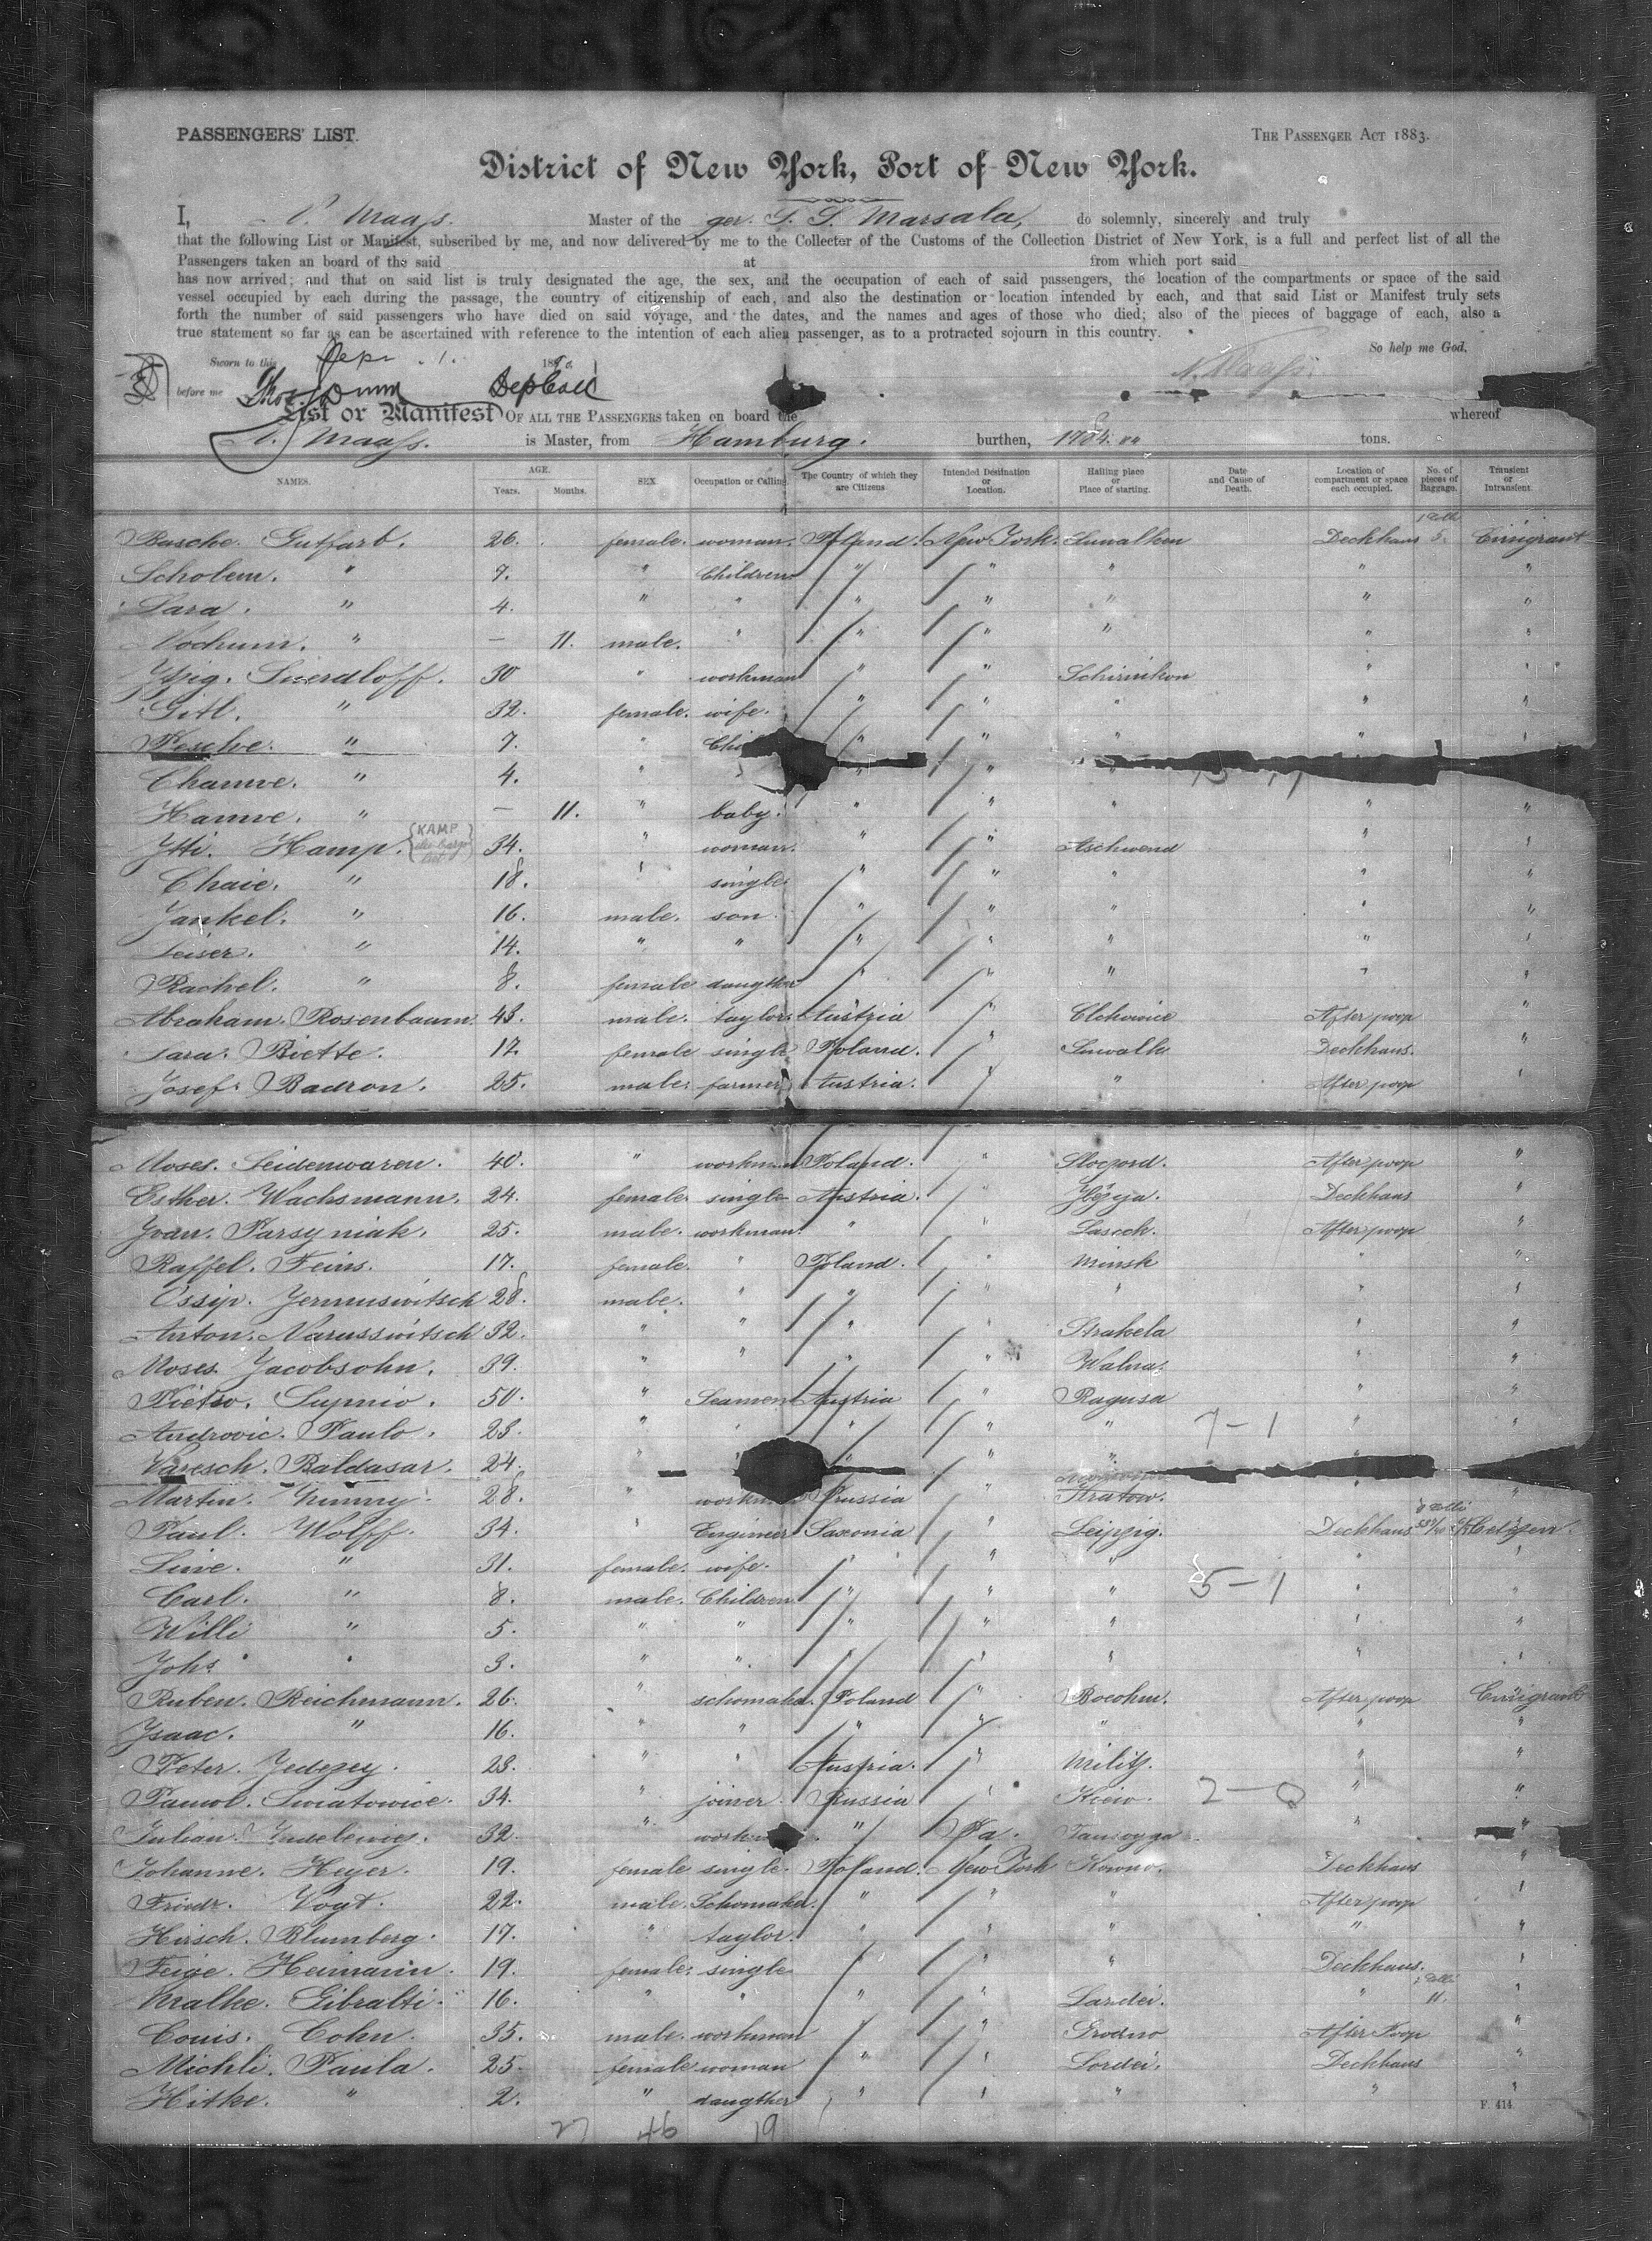 PASSENGERS' LIST.
THE PASSENGER ACT 1883.
District of New York, Port of New York.
I, N. Maass. Master of the ger. S. S. Marsala, do solemnly, sincerely and truly
that the following List or Manifest, subscribed by me, and now delivered by me to the Collecter of the Customs of the Collection District of New York, is a full and perfect list of all the
Passengers taken an board of the said at from which port said
has now arrived; and that on said list is truly designated the age, the sex, and the occupation of each of said passengers, the location of the compartments or space of the said
vessel occupied by each during the passage, the country of citizenship of each, and also the destination or location intended by each, and that said List or Manifest truly sets
forth the number of said passengers who have died on said voyage, and the dates, and the names and ages of those who died; also of the pieces of baggage of each, also a
true statement so far as can be ascertained with reference to the intention of each alien passenger, as to a protracted sojourn in this country.
So help me God,
Sworn to this 1. 189
N. Maass.
before me Dep Coll
List or Manifest OF ALL THE PASSENGERS taken on board the whereof
N. Maass. is Master, from Hamburg. burthen, tons.
NAMES. AGE. Years. Months. SEX Occupation or Calling. The Country of which they are Citizens Intended Desination or Location. Hailing place or Place of starting. Date and Cause of Death. Location of compartment or space each occupied. No. of pieces of Baggage. Transient or Intransient.
Basche. Gutfarb. 26. female. woman. Poland. New York. Suwalken Deckhaus 3. Emigrant
Scholem. " 7. " Children " " " " "
Sara. " 4. " " " " " " "
Nochum. " — 11. male. " " " " " "
Itzig. Swerdloff. 30 " workman " " Schirinkon " "
Gitl. " 32. female. wife. " " " " "
Pesche. " 7. " " " " " "
Channe. " 4. " " "
Hanne. " — 11. " baby. " " " " "
Itti. Hamp. {KAMP} 34. " woman. " Aschwend " "
Chaie. " 18. " single " " " " "
Jankel. " 16. male. son. " " " " "
Leiser. " 14. " " " " " " "
Rachel. " 8. female daugther " " " " "
Abraham. Rosenbaum. 43. male. taylor. Austria " Clchowice After poop "
Sara. Biette. 17. female single Poland. " Suwalk Deckhaus. "
Josef. Badron. 25. male. farmer Austria. " " After poop "
Moses. Seidenwaren. 40. " workman Poland. " After poop "
Esther. Wachsmann. 24. female. single Austria. " Deckhaus "
Ivan. Parsyniak. 25. male. workman. " " Lasech. After poop "
Raffel. Feins. 17. female. " Poland. " Minsk " "
Ossip. Jermuswitsch 28. male. " " " " " "
Anton. Narusswitsch 32. " " " " Strakela " "
Moses. Jacobsohn. 39. " " " " Walna. " "
Pietro. Supnio. 50. " Seamen Austria " Ragusa " "
Androvic. Paulo. 23. " " " " 7-1 " "
Varesch. Baldasar. 24. " " " "
Martin. 28. Prussia " Stratow. " "
Paul. Wolff. 34. " Engineer Saxonia " Leipzig. Deckhaus
Line. " 31. female. wife. " " " " "
Carl. " 8. male. Children " " " 5-1 " "
Willi " 5. " " " " " " "
Johs " 3. " " " " " "
Ruben. Reichmann. 26. " schomaker. Poland " Bocohm. After poop Emigrant
Isaac. " 16. " " " " " " "
Peter. Jedzey. 23. " " Austria. " Militz. " "
Pawol. Swiatowice. 34. " joiner Russia " Kiew. 2-0 " "
Julian. 32. " " Pa. " "
Johanne. Heyer. 19. female single. Poland. New York Kowno. Deckhaus "
Friedr. Vogt. 22. male. Schomaker. " " " After poop "
Hirsch. Blumberg. 17. " taylor. " " " " "
Feige. Heimann. 19. female. single " " " Deckhaus. "
Malke. Gibralti. 16. " " " " Lardei. " 11. "
Louis. Cohn. 35. male. workman " " Grodno After Poop "
Michli. Paula. 25. female woman " " Lordei. Deckhaus "
Hitke. " 2. " daugther " " " " "
F. 414
27 46 19